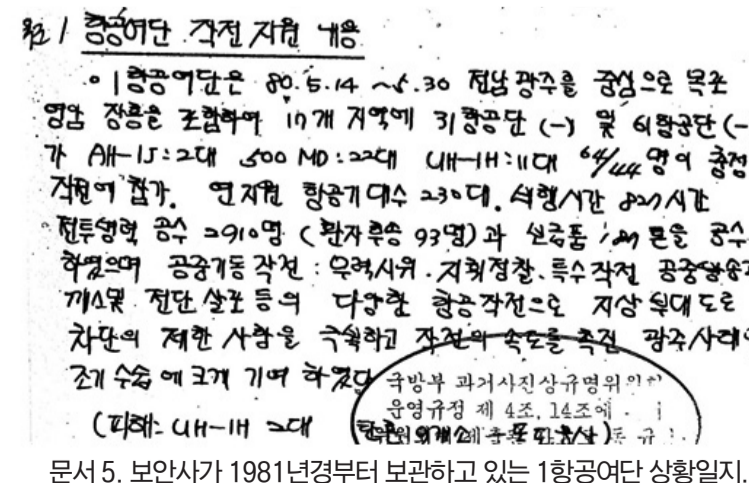 1 항공여단 작전 지원 내용
○ 1항공여단은 80. 5. 14 ~ 5. 30 전남 광주를 중심으로 목포
영암 장흥을 포함하여 10개 지역에 31항공단 (-) 및 61항공단 (-
가 AH-1J : 2대 500 MD : 22대 UH-1H : 11대 64/144 명이 충정
작전에 참가. 연지원 항공기 대수 230대. 비행시간 827시간
전투병력 공수 2910명 (환자후송 93명)과 보급품 톤을 공수
하였으며 공중기동작전 : 무력시위. 지휘정찰. 특수작전 공중방송
까스및 전단 살포등의 다양한 항공작전으로 지상 부대 도로
차단의 제한 사항을 극복하고 작전의 속도를 촉진 광주사태
조기 수습에 크게 기여 하였다
국방부 과거사진상규명위
운영규정 제 4조, 14조에
(피해: UH-1H 2대
문서 5. 보안사가 1981년경부터 보관하고 있는 1항공여단 상황일지.